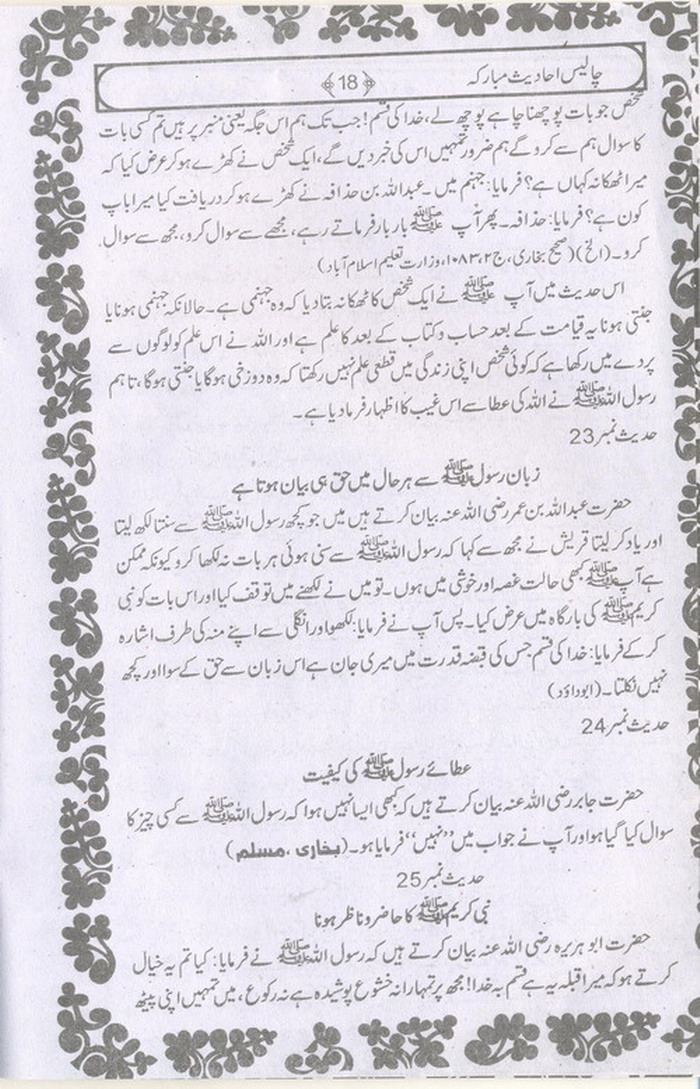 چالیس احادیث مبارکہ ﴿18﴾
شخص جو بات پوچھنا چاہے پوچھ لے، خدا کی قسم! جب تک ہم اس جگہ یعنی منبر پر ہیں تم کسی بات
کا سوال ہم سے کرو گے ہم ضرور تمہیں اس کی خبر دیں گے، ایک شخص نے کھڑے ہو کر عرض کیا کہ
میرا ٹھکانہ کہاں ہے؟ فرمایا: جہنم میں۔ عبداللہ بن حذافہ نے کھڑے ہو کر دریافت کیا میرا باپ
کون ہے؟ فرمایا: حذافہ۔ پھر آپ ﷺ بار بار فرماتے رہے، مجھے سے سوال کرو، مجھ سے سوال
کرو۔ (الخ) (صحیح بخاری، ج۲، ۱۰۸۳، وزارت تعلیم اسلام آباد)
اس حدیث میں آپ ﷺ نے ایک شخص کا ٹھکانہ بتا دیا کہ وہ جہنمی ہے۔ حالانکہ جہنمی ہونا یا
جنتی ہونا یہ قیامت کے بعد حساب و کتاب کے بعد کا علم ہے اور اللہ نے اس علم کو لوگوں سے
پردے میں رکھا ہے کہ کوئی شخص اپنی زندگی میں قطعی علم نہیں رکھتا کہ وہ دوزخی ہوگا یا جنتی ہوگا، تاہم
رسول اللہ ﷺ نے اللہ کی عطا سے اس غیب کا اظہار فرما دیا ہے۔
حدیث نمبر 23
زبان رسول ﷺ سے ہر حال میں حق ہی بیان ہوتا ہے
حضرت عبداللہ بن عمر رضی اللہ عنہ بیان کرتے ہیں میں جو کچھ رسول اللہ ﷺ سے سنتا لکھ لیتا
اور یاد کر لیتا قریش نے مجھ سے کہا کہ رسول اللہ ﷺ سے سنی ہوئی ہر بات نہ لکھا کرو کیونکہ ممکن
ہے آپ ﷺ کبھی حالت غصہ اور خوشی میں ہوں۔ تو میں نے لکھنے میں توقف کیا اور اس بات کو نبی
کریم ﷺ کی بارگاہ میں عرض کیا۔ پس آپ نے فرمایا: لکھو اور انگلی سے اپنے منہ کی طرف اشارہ
کر کے فرمایا: خدا کی قسم جس کی قبضہ قدرت میں میری جان ہے اس زبان سے حق کے سوا اور کچھ
نہیں نکلتا۔ (ابوداؤد)
حدیث نمبر 24
عطائے رسول ﷺ کی کیفیت
حضرت جابر رضی اللہ عنہ بیان کرتے ہیں کہ کبھی ایسا نہیں ہوا کہ رسول اللہ ﷺ سے کسی چیز کا
سوال کیا گیا ہو اور آپ نے جواب میں ”نہیں“ فرمایا ہو۔ (بخاری، مسلم)
حدیث نمبر 25
نبی کریم ﷺ کا حاضر و ناظر ہونا
حضرت ابو ہریرہ رضی اللہ عنہ بیان کرتے ہیں کہ رسول اللہ ﷺ نے فرمایا: کیا تم یہ خیال
کرتے ہو کہ میرا قبلہ یہ ہے قسم بہ خدا! مجھ پر تمہارا نہ خشوع پوشیدہ ہے نہ رکوع، میں تمہیں اپنی پیٹھ